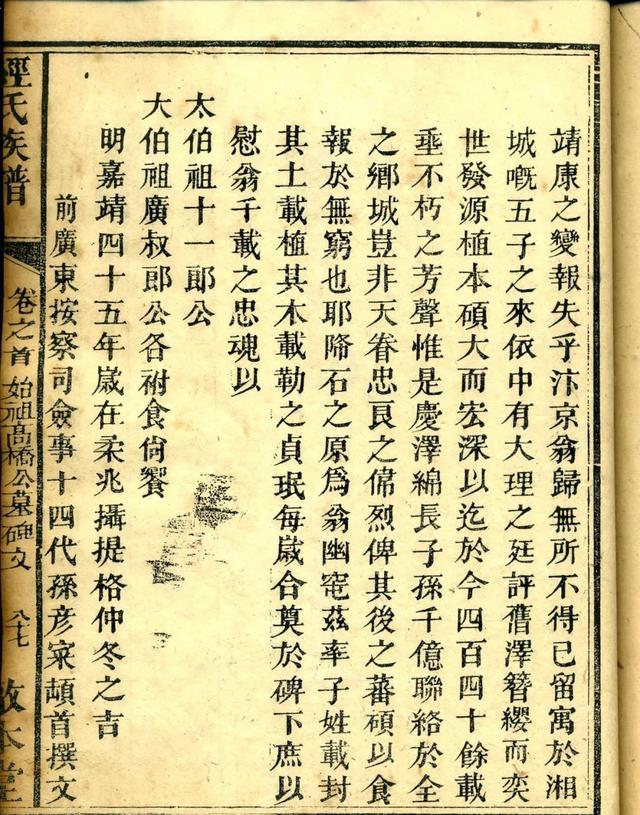 靖康之變報失乎汴京翁歸無所不得已留寓於湘
城嘅五子之來依中有大理之廷評舊澤簪纓而奕
世發源植本碩大而宏深以迄於今四百四十餘載
垂不朽之芳聲惟是慶澤綿長子孫千億聯絡於全
之鄉城豈非天眷忠良之偹烈俾其後之蕃碩以食
報於無窮也耶隮石之原爲翁幽竁茲率子姓載封
其土載植其木載勒之貞珉每歲合奠於碑下庶以
慰翁千載之忠魂以
太伯祖十一郎公
大伯祖廣叔郎公各祔食尙饗
明嘉靖四十五年歲在柔兆攝提格仲冬之吉
前廣東按察司僉事十四代孫彥寀頓首撰文
氏族譜
卷之首
始祖高橋公墓碑文
八七